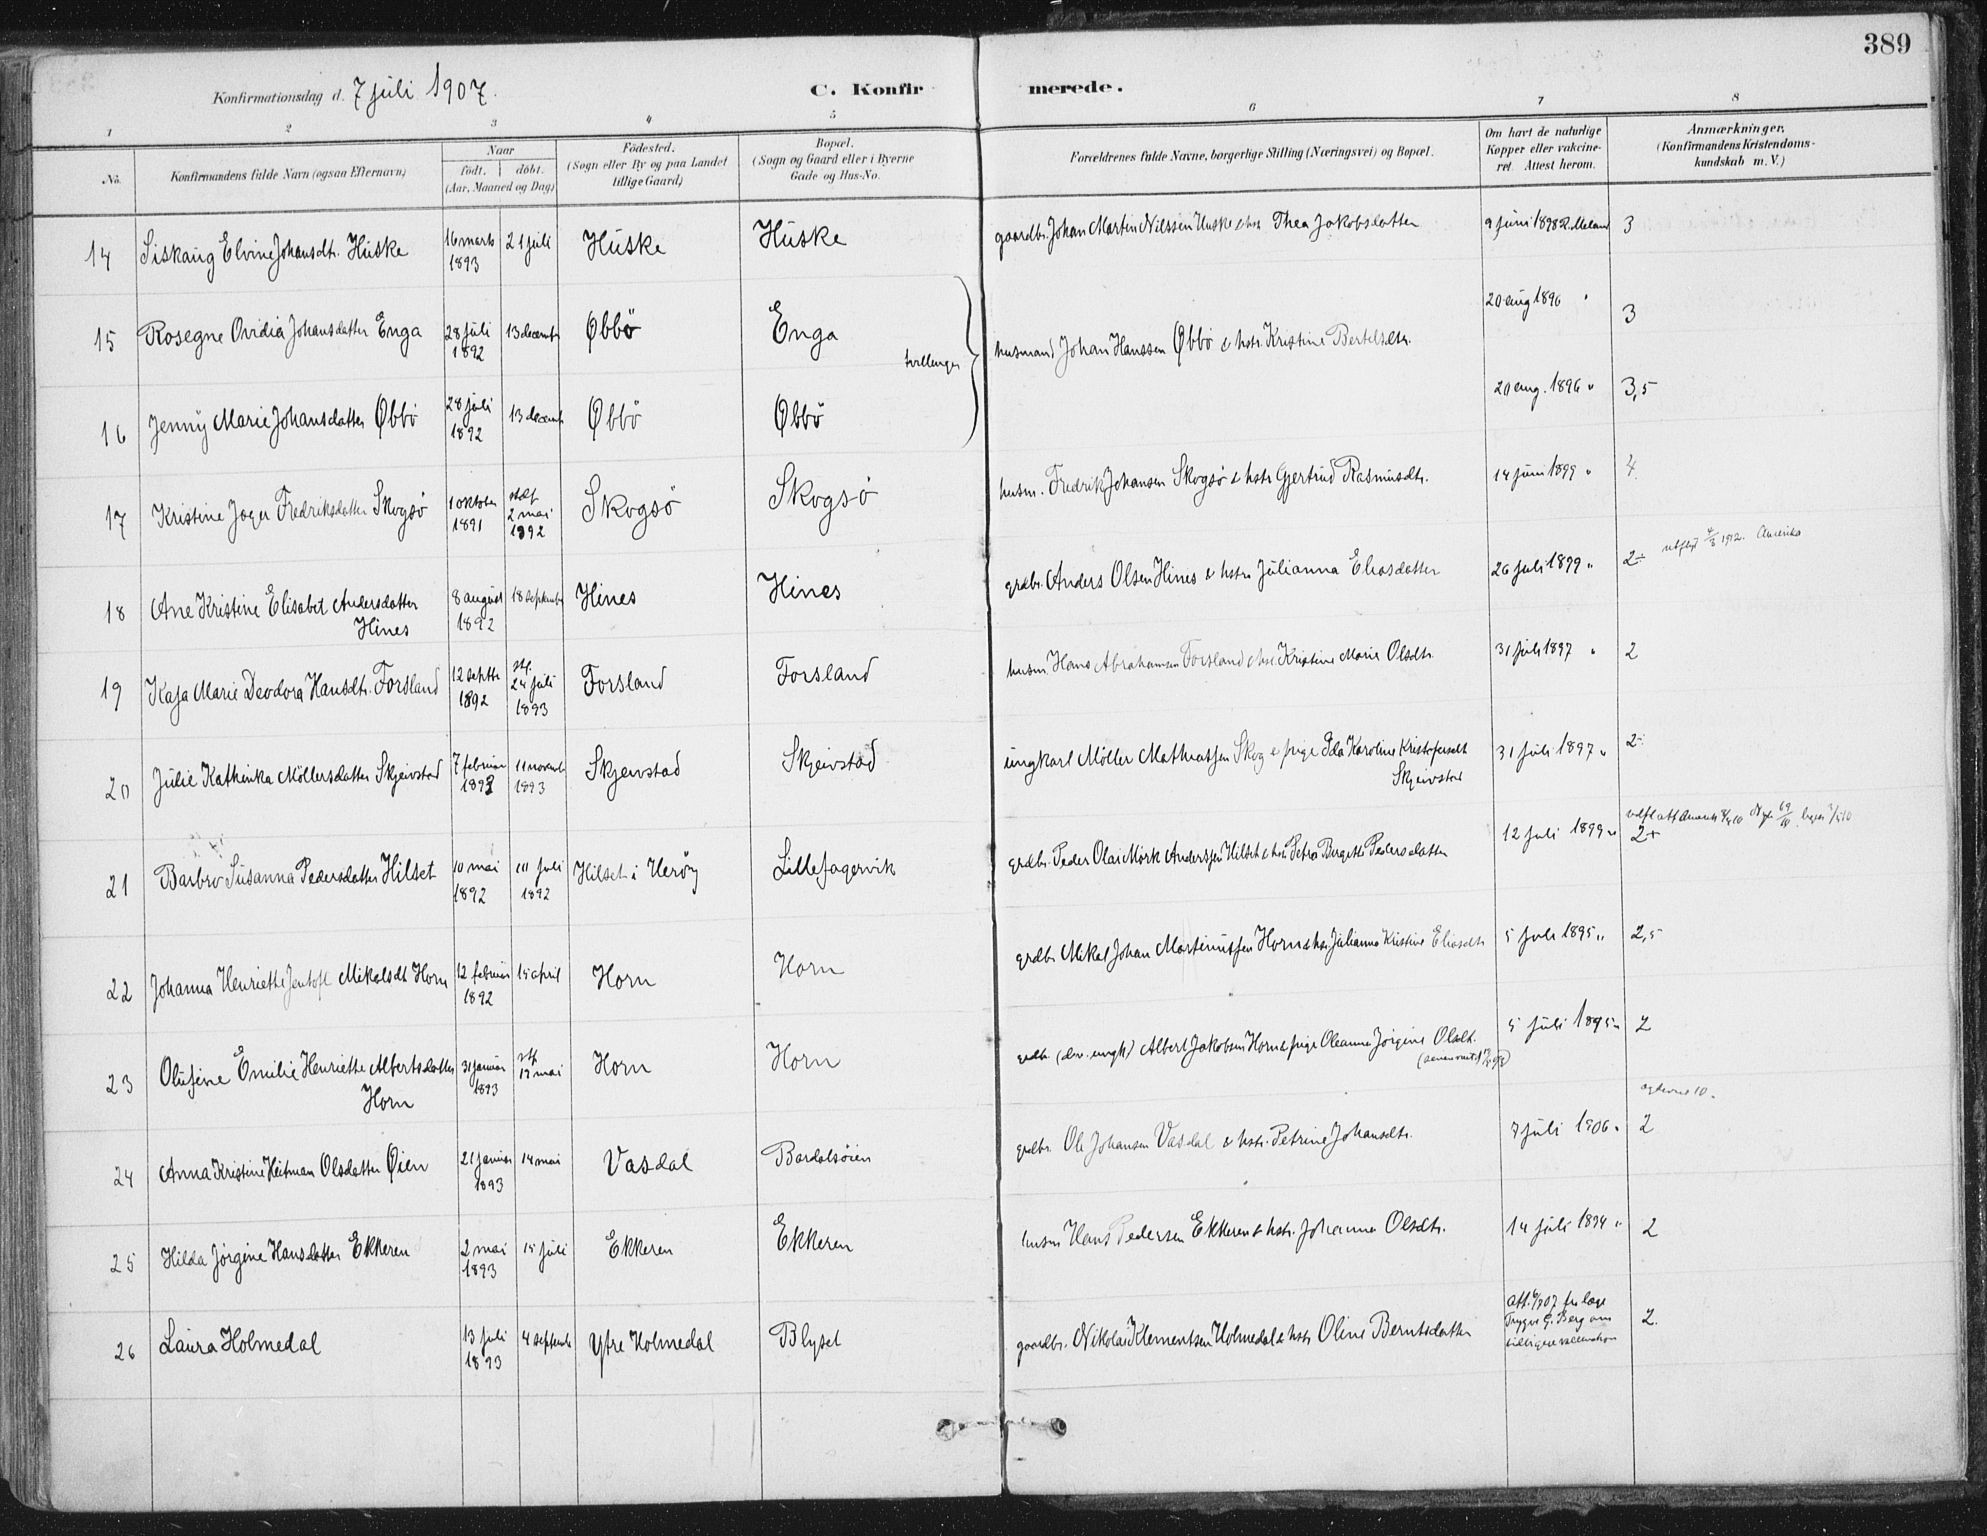 389
Konfirmationsdag d. 7 juli 1907.
C. Konfir merede.
1 2 3 4 5 6 7 8
No. Konfirmandens fulde Navn (ogsaa Efternavn)
Naar
født. døbt.
(Aar, Maaned og Dag)
Fødested.
(Sogn eller By og paa Landet
tillige Gaard)
Bopæl.
(Sogn og Gaard eller i Byerne
Gade og Hus-No.
Forældrenes fulde Navne, borgerlige Stilling (Næringsvei) og Bopæl.
Om havt de naturlige
Kopper eller vakcine-
ret. Attest herom.
Anmærkninger.
(Konfirmandens Kristendoms-
kundskab m. V.)
14 Siskaug Elvine Johansdtr. Huske 16 marts 1893 21 juli Huske Huske gaardbr. Johan Martin Nilssen Huske & hstr Thea Jakobsdatter 9 juni 1898 R. Meland 3
15 Rosegne Ovidia Johansdatter Enga 28 juli 1892 13 decemb Øbbö Enga
tvillinger
husmand Johan Hanssen Øbbö & hstr. Kristine Bertelsdtr. 20 aug 1896 " 3
16 Jenny Marie Johansdatter Øbbö 28 juli 1892 13 decemb Øbbö Øbbö 20 aug. 1896 " 3,5
17 Kristine Joger Fredriksdatter Skogsö 1 oktober 1891 stdf 2 mai 1892 Skogsö Skogsö husm. Fredrik Johansen Skogsö & hstr Gjertrud Rasmusdtr. 14 juni 1899 " 4.
18 Ane Kristine Elisabet Andersdatter
Hines 8 august 1892 18 september Hines Hines grdbr. Anders Olsen Hines & hstr Julianna Eliasdatter 26 juli 1899 " 2÷ utflyt 4/3 1912. Amerika
19 Kaja Marie Deodora Hansdtr. Forsland 12 septbr 1892 stf. 24 juli 1893 Forsland Forsland husm Hans Abrahamsen Forsland & hstr Kristine Marie Olsdtr. 31 juli 1897 " 2
20 Julie Kathinka Möllersdatter Skjeivstad 7 februar 1893 11 novemb 1893 Skjeivstad Skjeivstad ungkarl Møller Mathiassen Skog & pige Ida Karoline Kristofersdt
Skjeivstad 31 juli 1897 " 2÷
21 Barbro Susanna Pedersdatter Hilset 10 mai 1892 10 juli 1892 Hilset i Herøy Lillefagervik grdbr. Peder Olai Mörk Anderssen Hilset & hstr Petra Birgitte Pedersdatter 12 juli 1899 " 2+
22 Johanna Henriette Jentoft Mikalsdt Horn 12 februar 1892 15 april Horn Horn grdbr Mikal Johan Martinussen Horn & hstr Julianna Kristine Eliasdtr 5 juli 1895 " 2,5
23 Olufine Emilie Henriette Albertsdatter
Horn 31 januar 1893 stf 12 mai Horn Horn grdbr. (dav. ungk) Albert Jakobsen Horn & pige Oleanna Jörgine Olsdt. 5 juli 1895 " 2
24 Anna Kristine Heitman Olsdatter Øien 21 januar 1893 14 mai Vasdal Bardalsöien grdbr. Ole Johansen Vasdal & hstr. Petrine Johansdtr. 7 juli 1906 " 2
25 Hilda Jörgine Hansdatter Ekkeren 2 mai 1893 15 juli Ekkeren Ekkeren husm Hans Pedersen Ekkeren & hstr. Johanna Olsdtr. 14 juli 1894 " 2
26 Laura Holmedal 13 juli 1893 4 septemb Ytre Holmedal Blyset gaardbr. Nikolai Klementsen Holmedal & hstr Oline Berntsdatter Att. 6/7 07 fra læge
Trygve G. Berg om
tidligere vakcination 2.